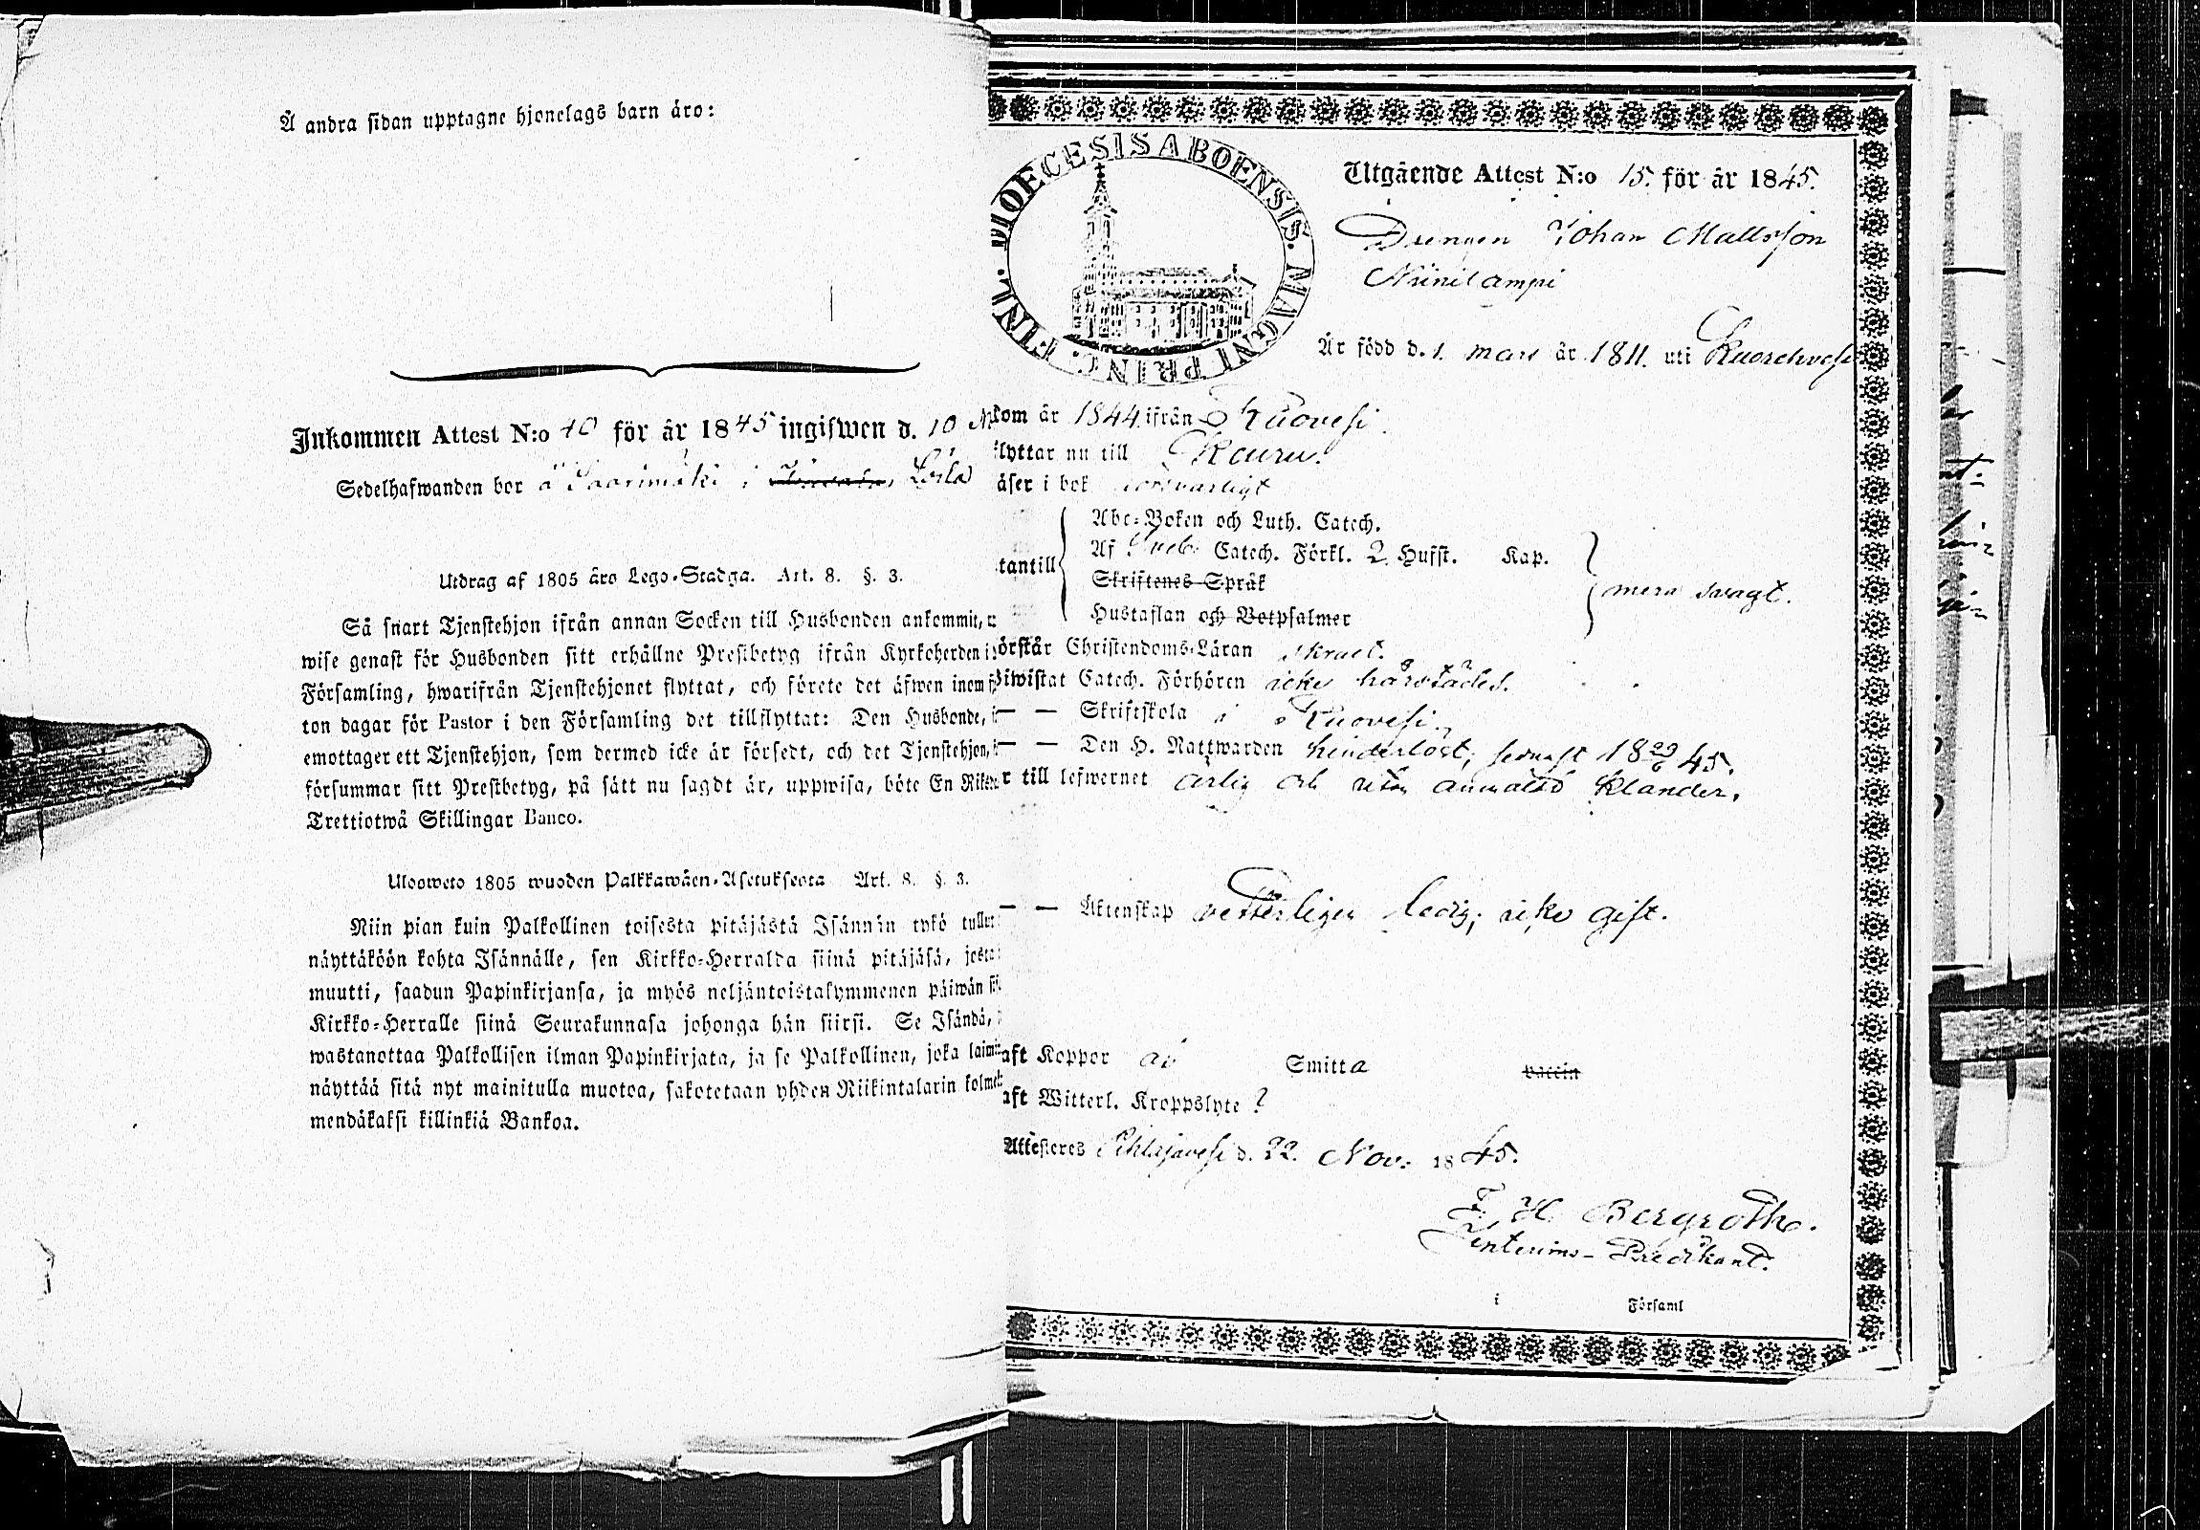 Å andra sidan upptagne hjonelags barn äro:
Inkommen Attest N:o 10 för år 1845 ingifwen d. 10
Sedelhafwanden bor å Saarimäki i
Utdrag af 1805 års Lego-Stadga. Art. 8. §. 3.
Så snart Tjenstehjon ifrån annan Socken till Husbonden ankommit,
wise genast för Husbonden sitt erhållne Prestbetyg ifrån Kyrkoherden i
Församling, hwarifrån Tjenstehjonet flyttat, och förete det äfwen inom
ton dagar för Pastor i den Församling det tillflyttat: Den Husbonde,
emottager ett Tjenstehjon, som dermed icke är försedt, och det Tjenstehjon,
försummar sitt Prestbetyg, på sätt nu sagdt är, uppwisa, böte En Riksd.
Trettiotwå Skillingar Banco.
Ulosweto 1805 wuoden Palkkawäen-Asetuksesta Art. 8. §. 3.
Niin pian kuin Palkollinen toisesta pitäjästä Isännän tykö tullut
näyttäköön kohta Isännälle, sen Kirkko-Herralda siinä pitäjäsä, josta
muutti, saadun Papinkirjansa, ja myös neljäntoistakymmenen päiwän
Kirkko-Herralle siinä Seurakunnasa johonga hän siirsi. Se Isändä,
wastanottaa Palkollisen ilman Papinkirjata, ja se Palkollinen, joka laimi
näyttää sitä nyt mainitulla muotoa, sakotetaan yhden Riikintalarin kolme
mendäkaksi killinkiä Bankoa.
DIOECESIS ABOENSIS. MAGNI PRINC. FINL.
Utgående Attest N:o 15. för år 1845.
Drengen Johan Mattsson
Niinilampi
Är född d. 1. mars år 1811. uti Kuorehvesi
kom år 1844 ifrån Ruovesi
flyttar nu till Keuru.
äser i bok försvarligt
tantill
Abc-Boken och Luth. Catech.
Af Sveb. Catech. Förkl. 2 Hufst. Kap.
Skriftenes Språk
Hustaflan och Botpsalmer
mera svagt.
örstår Christendoms-Läran svagt.
Biwistat Catech. Förhören icke härstädes.
— — Skriftskola i Ruovesi.
— — Den H. Nattwarden hinderlöst, sednast 18 29/6 45.
r till lefwernet ärlig och utan anmäld klander.
— — Äktenskap vetterligen ledig; icke gift.
aft Koppor ej Smitta vaccin
aft Witterl. Kroppslyte ?
Attesteres Pihlajavesi d. 22. Nov. 1845.
F. H. Bergroth.
Interims-Predikant.
i Församl